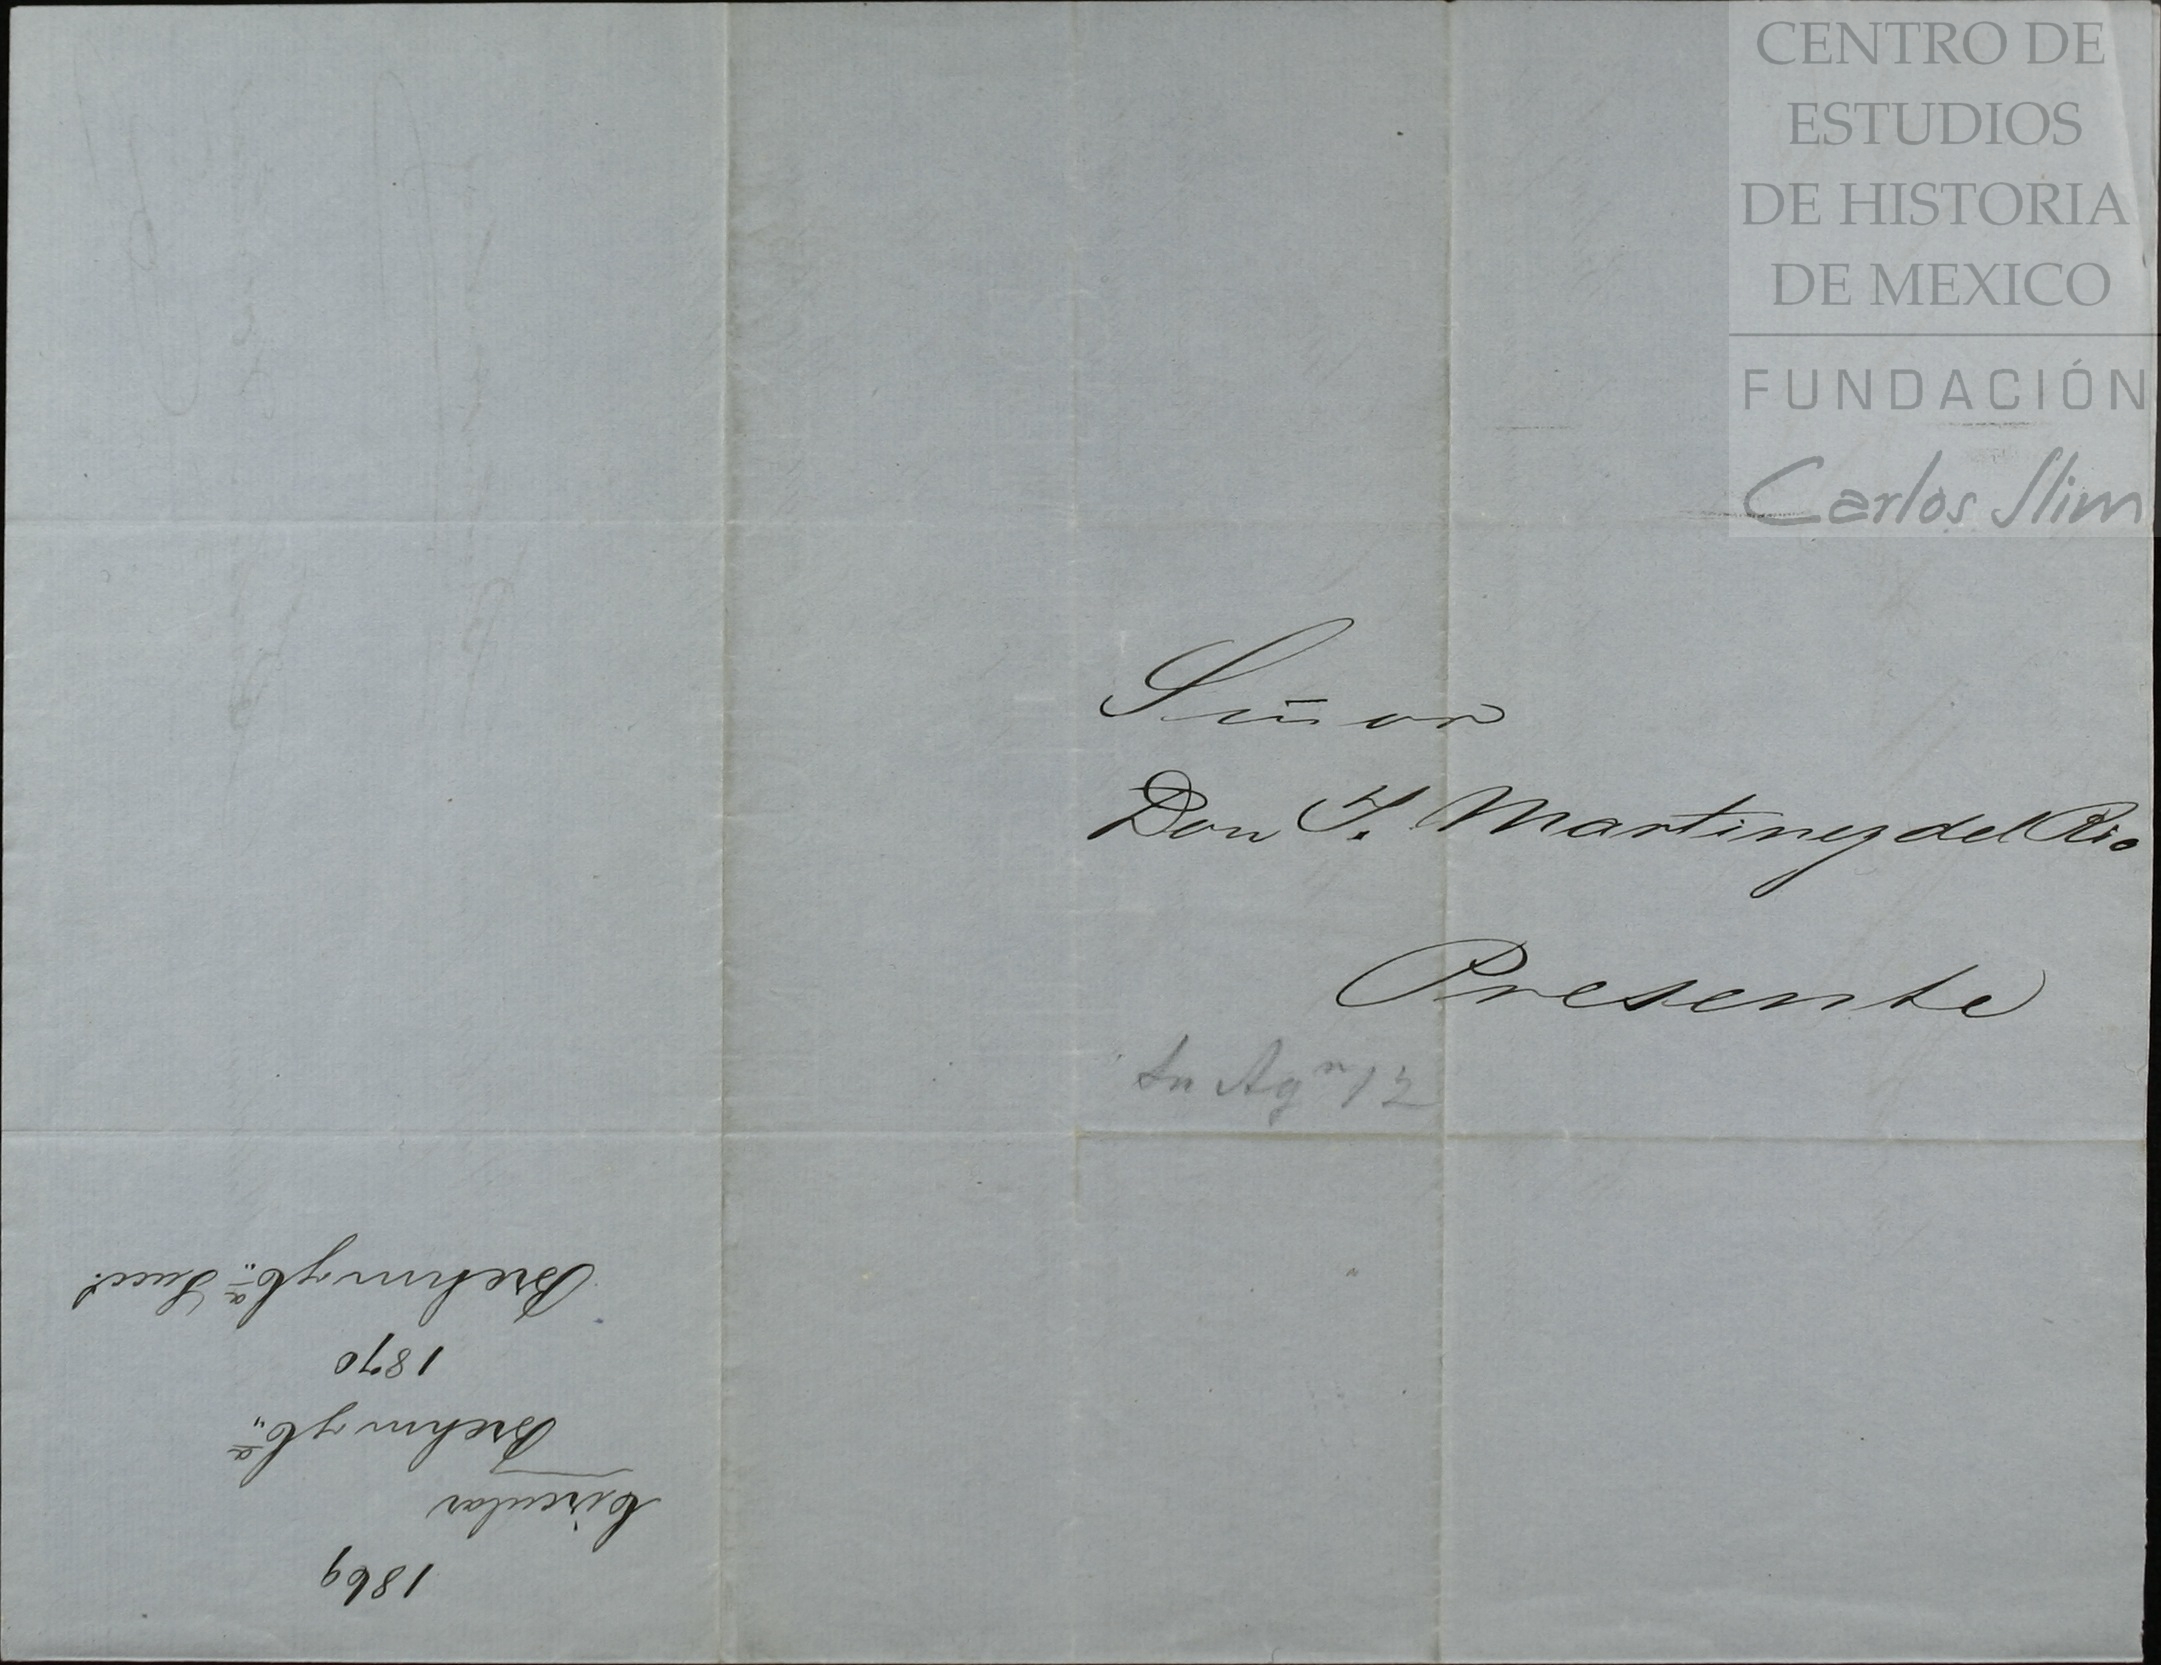 CENTRO DE
ESTUDIOS
DE HISTORIA
DE MEXICO
FUNDACIÓN
Carlos Slim
Señor
Don J. Martinez del Rio
Presente
Sn Agn 12
1869
Circular
Brehm y Ca
1870
Brehm y Ca Sucs